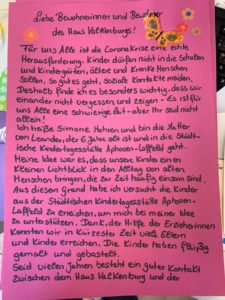 Liebe Bewohnerinnen und Bewohner
des Haus Valkenburgs!
Für uns Alle ist die Corona Krise eine echte
Herausforderung. Kinder dürfen nicht in die Schulen
und Kindergärten, ältere und Kranke Menschen
sollen, so gut es geht, soziale Kontakte meiden.
Deshalb finde ich es besonders wichtig, dass wir
einander nicht vergessen und zeigen - Es ist für
uns Alle eine schwierige Zeit - aber Ihr seid nicht
allein!
Ich heiße Simone und bin die Mutter
von Leander, der 6 Jahre alt ist und in die Städt-
ische Kindertagesstätte Aphoven-Laffeld geht.
Meine Idee war es, dass unsere Kinder einen
Kleinen Lichtblick in den Alltag von alten
Menschen bringen, die zur Zeit häufig einsam sind.
Aus diesem Grund habe ich versucht die Kinder
aus der Städtischen Kindertagesstätte Aphoven-
Laffeld zu erreichen, um mich bei meiner Idee
zu unterstützen. Dank, die Hilfe der Erzieherinnen
Konnten wir in Kürzester Zeit viele Eltern
und Kinder erreichen. Die Kinder haben fleißig
gemalt und gebastelt.
Seid vielen Jahren besteht ein guter Kontakt
zwischen dem Haus Valkenburg und der